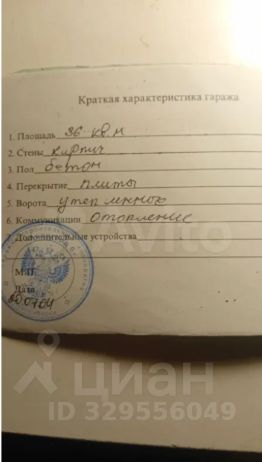 Краткая характеристика гаража
1. Площадь 36 кв м
2. Стены кирпич
3. Пол бетон
4. Перекрытие плиты
5. Ворота утепленные
6. Коммуникации отопление
7. Дополнительные устройства
М.П.
Дата
циан
ID 329556049